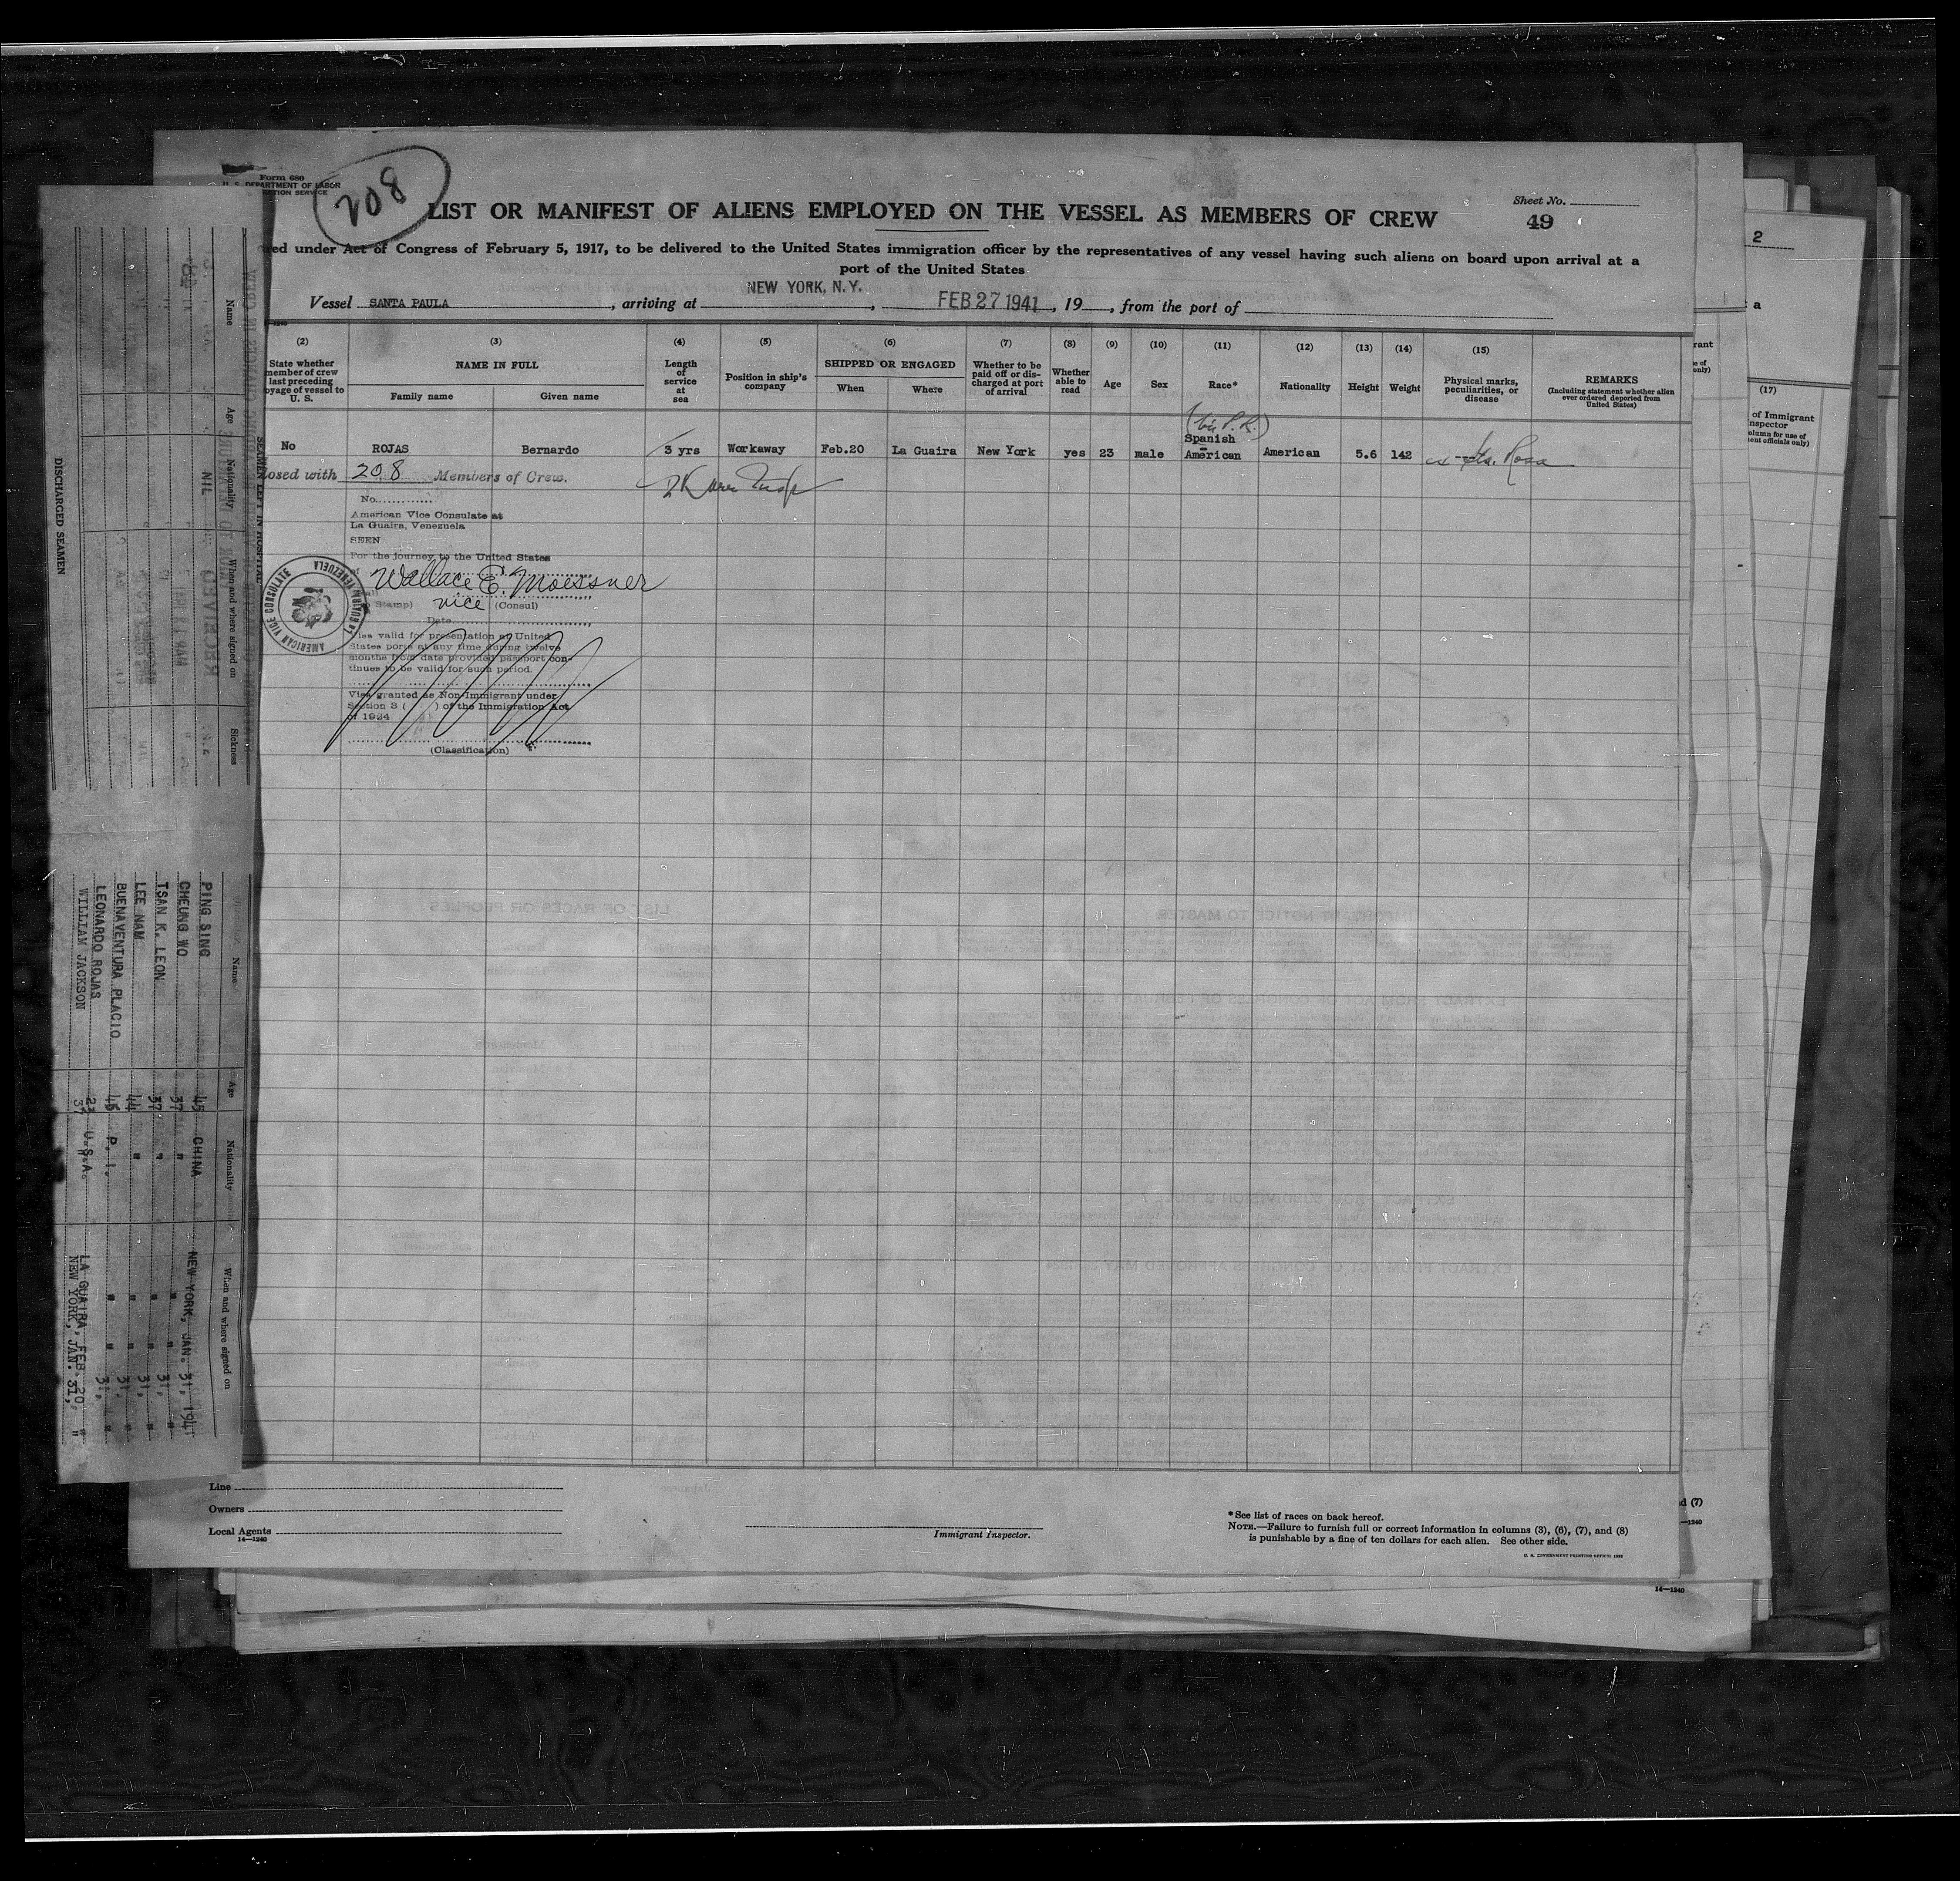 208
Form 680
U. S. DEPARTMENT OF LABOR
LIST OR MANIFEST OF ALIENS EMPLOYED ON THE VESSEL AS MEMBERS OF CREW
Sheet No.
49
under Act of Congress of February 5, 1917, to be delivered to the United States immigration officer by the representatives of any vessel having such aliens on board upon arrival at a
port of the United States
Vessel SANTA PAULA, arriving at NEW YORK, N.Y., FEB 27 1941, 19, from the port of
(2) (3) (4) (5) (6) (7) (8) (9) (10) (11) (12) (13) (14) (15)
State whether member of crew last preceding voyage of vessel to U. S.
NAME IN FULL
Family name Given name
Length of service at sea
Position in ship's company
SHIPPED OR ENGAGED
When Where
Whether to be paid off or discharged at port of arrival
Whether able to read
Age
Sex
Race*
Nationality
Height
Weight
Physical marks, peculiarities, or disease
REMARKS
(Including statement whether alien ever ordered deported from United States)
No ROJAS Bernardo 3 yrs Workaway Feb.20 La Guaira New York yes 23 male Spanish American American 5.6 142
208 Members of Crew.
No.
American Vice Consulate at
La Guaira, Venezuela
SEEN
For the journey to the United States
Wallace E. Moessner
Stamp) vice (Consul)
Date
Visa valid for presentation at United
States ports at any time during twelve
months from date provided passport con-
tinues to be valid for such period.
Visa granted as Non-Immigrant under
Section 3 ( ) of the Immigration Act
of 1924
(Classification)
AMERICAN VICE CONSULATE
LA GUAIRA, VENEZUELA
Line
Owners
Local Agents
14—1240
Immigrant Inspector.
*See list of races on back hereof.
NOTE.—Failure to furnish full or correct information in columns (3), (6), (7), and (8)
is punishable by a fine of ten dollars for each alien. See other side.
14—1240
2
(17)
of Immigrant
DISCHARGED SEAMEN
SEAMEN LEFT IN HOSPITAL
Name Age Nationality When and where signed on Sickness
NIL
Name Age Nationality When and where signed on
PING SING 45 CHINA NEW YORK, JAN. 31, 194
CHEUNG WO 37 " " " "
TSAN K. LEON 37 " " " 31, "
LEE NAM 44 " " " 31, "
BUENAVENTURA PLACIO 46 P. I. " " 31, "
LEONARDO ROJAS 23 U.S.A. LA GUAIRA, FEB. 20, "
WILLIAM JACKSON 37 NEW YORK, JAN. 31, "